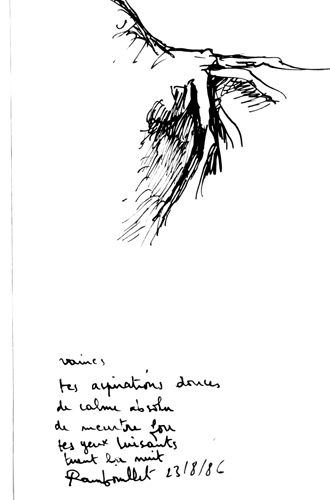 vaines
tes aspirations douces
de calme absolu
de meurtre fou
tes yeux luisants
tuent la nuit
Rambouillet 23/8/86